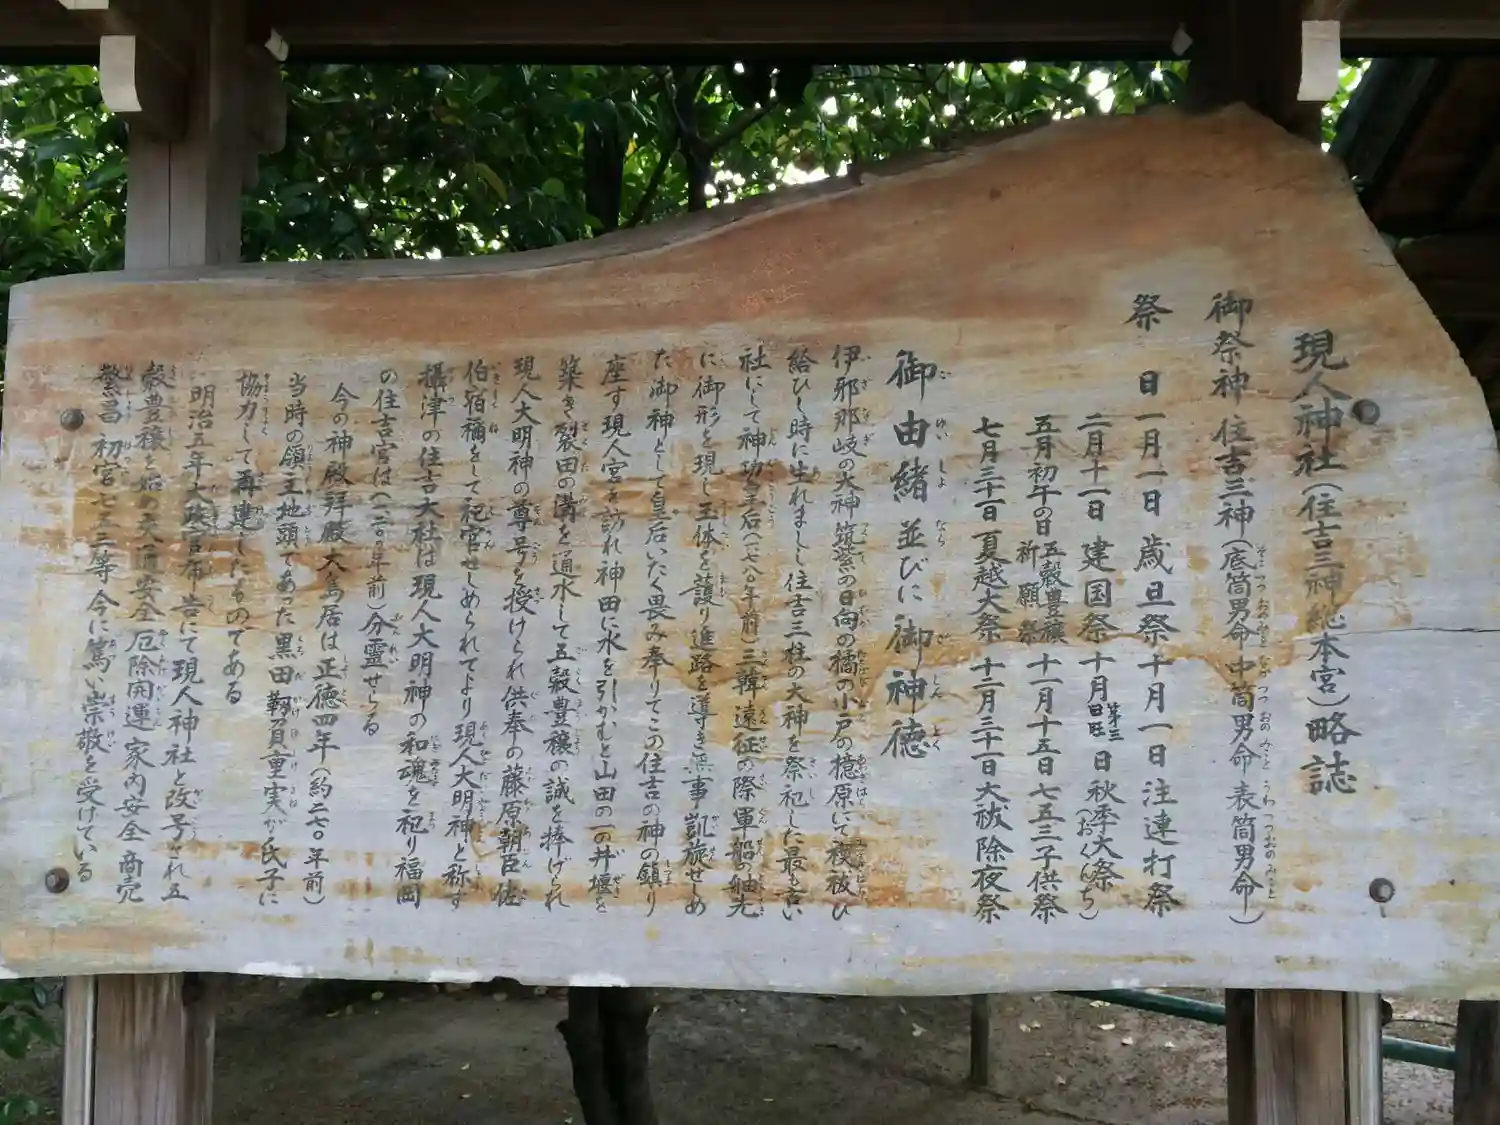 現人神社(住吉三神総本宮)略誌
御祭神 住吉三神(底筒男命 中筒男命 表筒男命)
祭 日 一月一日 歳旦祭 十月一日 注連打祭
二月十一日 建国祭 十月第三日曜日 秋季大祭(おくんち)
五月初午の日 五穀豊穣祈願祭 十一月十五日 七五三子供祭
七月三十一日 夏越大祭 十二月三十一日 大祓除夜祭
御由緒並びに御神徳
伊邪那岐の大神筑紫の日向の橘の小戸の檍原にて禊祓ひ
給ひし時に生れましし住吉三柱の大神を祭祀した最も古い
社にして神功皇后(一七八〇年前)三韓遠征の際軍船の舳先
に御形を現し玉体を護り進路を導き無事凱旋せしめ
た御神として皇后いたく畏み奉りてこの住吉の神の鎮り
座す現人宮を訪れ神田に水を引かむと山田の一の井堰を
築き裂田の溝を通水して五穀豊穣の誠を捧げられ
現人大明神の尊号を授けられ供奉の藤原朝臣佐
伯宿禰をして祀官せしめられてより現人大明神と称す
攝津の住吉大社は現人大明神の和魂を祀り福岡
の住吉宮は(一二〇〇年前)分霊せらる
今の神殿拝殿大鳥居は正徳四年(約二七〇年前)
当時の領主地頭であた黒田靱負重実が氏子に
協力して再建したものである
明治五年太政官布告にて現人神社と改号され五
穀豊穣を始め交通安全厄除開運家内安全商売
繁昌初宮七五三等今に篤い崇敬を受けている